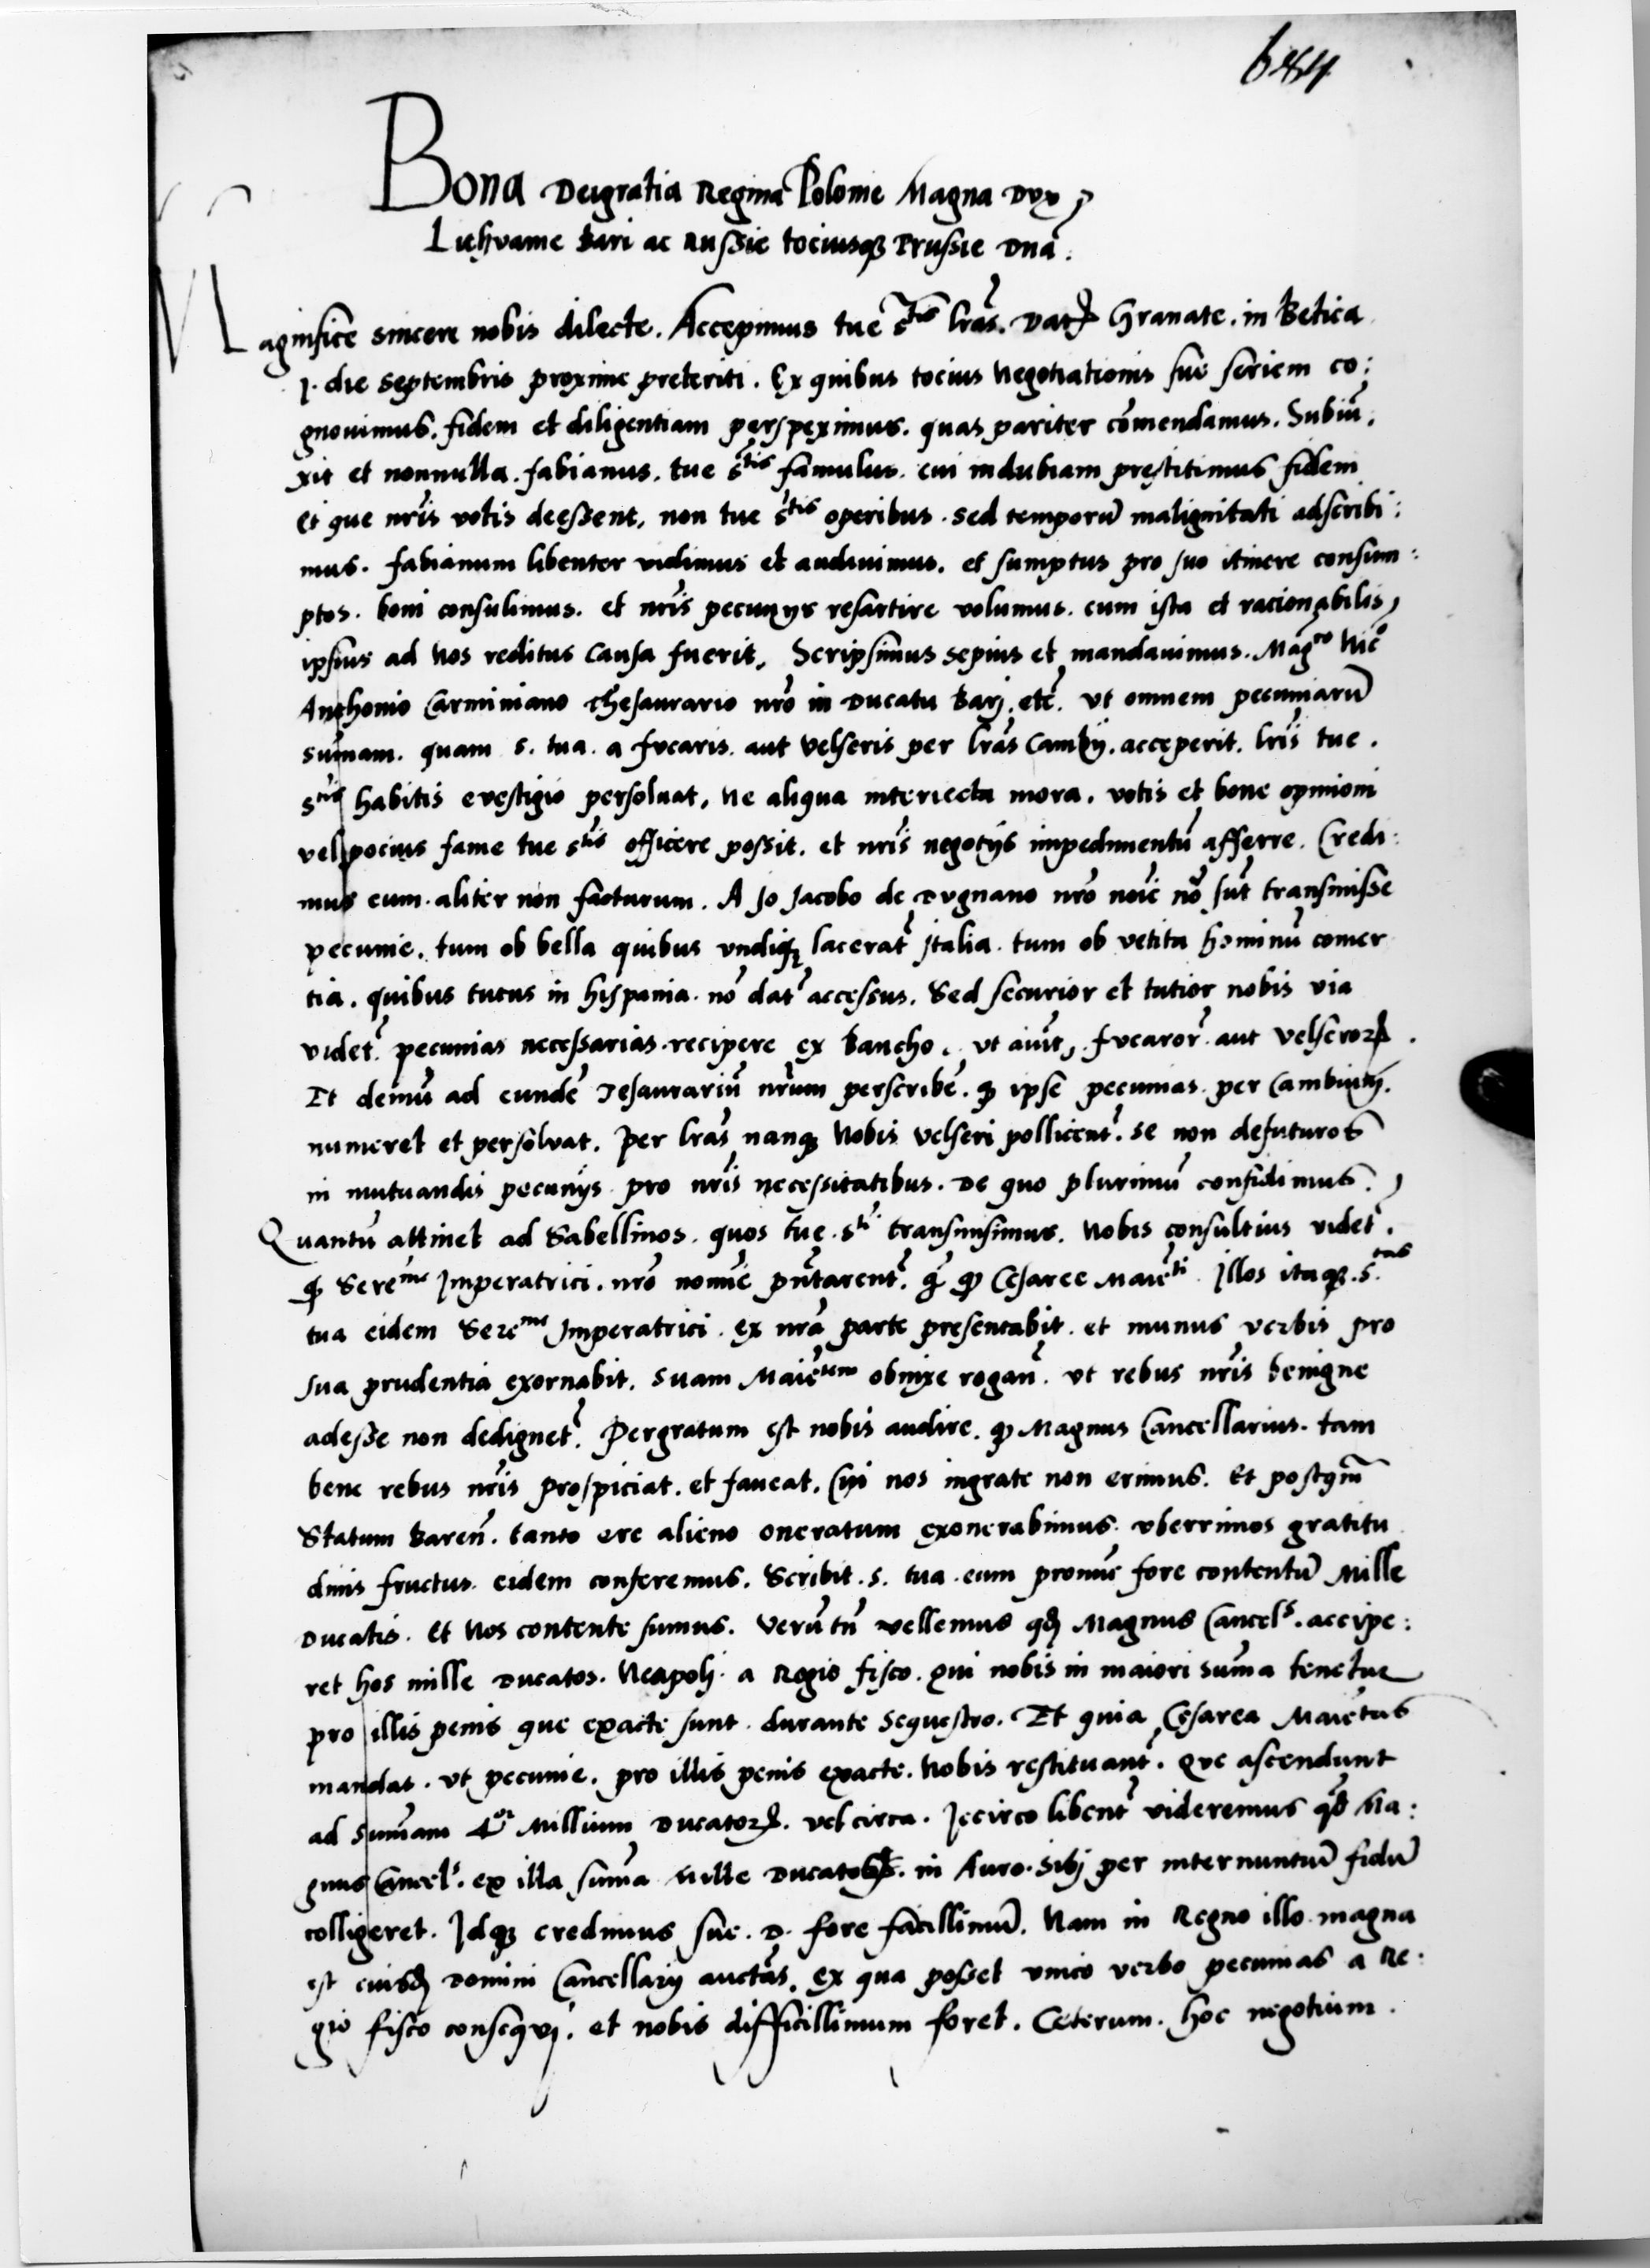 Bona Dei gratia Regina Polonie Magna Dux
Lithvanie Bari ac Russie tociusq3 Prussie Dna.
Magnifice sincere nobis dilecte. Accepimus tue s^tis lras. Dat Granate. in Betica
I. die Septembris proxime preteriti. Ex quibus tocius Negotiationis sue seriem co:
gnouimus. fidem et diligentiam perspeximus. quas pariter cōmendamus. Subiū:
xit et nonnulla. fabianus. tue s^tis famulus. cui indubiam prestitimus fidem
Et que nris votis deessent, non tue s^tis operibus. sed temporū malignitati adscribi:
mus. fabianum libenter vidimus et audiuimus. et sumptus pro suo itinere consum:
ptos. boni consulimus. et nris pecunijs resartire volumus. cum ista et racionabilis
ipsius ad Nos reditus causa fuerit. Scripsimus sepius et mandauimus. Mag^co Nic^o
Anthonio Carminiano Thesaurario nro in Ducatu Barj. etc. vt omnem pecuniarū
sumam. quam s. tua a fvcaris. aut velseris per lras Cambij. acceperit. lris tue.
s^tis habitis evestigio persoluat, Ne aliqua interiecta mora. votis et bone opinioni
vel pocius fame tue s^tis officere possit. et nris negotijs impedimentū afferre. Credi:
mus eum. aliter non facturum. A Jo Jacobo de Dvgnano nro noīe nō sūt transmisse
pecunie. tum ob bella quibus vndiq3 lacerat Italia. tum ob vetita hominū comer
tia. quibus tutus in hispania. nō dat accessus. Sed securior et tutior nobis via
videt. pecunias necessarias. recipere ex Bancho. vt aiūt, fvcaror. aut velseror.
Et demū ad eundē Tesaurariū nrum perscribē. q ipse pecunias. per Cambium.
numeret et persolvat. Per lras nanq3 Nobis velseri pollicent. se non defuturos
in mutuandis pecunijs pro nris necessitatibus. De quo plurimū confidimus.
Quantū attinet ad Sabellinos. quos tue s^ti transmisimus. Nobis consultius videt.
q Sere^me Imperatrici. nro nomīe pñtarent. q q Cesaree Maie^ti. Illos itaq3. s.^tas
tua eidem Sere^me Imperatrici. ex nra parte presentabit. et munus verbis pro
sua prudentia exornabit. suam Maie^tem obnixe rogañ. vt rebus nris benigne
adesse non dedignet. Pergratum est nobis audire. q Magnus Cancellarius. tam
bene rebus nris prospiciat. et faueat. Cui nos ingrate non erimus. Et postqm
Statum Bareñ. tanto ere alieno oneratum exonerabimus. vberrimos gratitu
dinis fructus. eidem conferemus. Scribit. s. tua. eum pronūc fore contentū Mille
Ducatis. et Nos contente sumus. Verūtñ vellemus qd Magnus Cancel^s. accipe:
ret hos mille Ducatos. Neapolj. a Regio fisco. qui nobis in maiori sum̄a tenetur
pro illis penis que exacte sunt. durante sequestro. Et quia Cesarea Maiestas
mandat. vt pecunie. pro illis penis exacte. Nobis restituant. Qve ascendunt
ad sum̄am 4^or Millium Ducator. vel circa. Iccirco libent videremus qd Ma:
gnus Cancel^s. ex illa sum̄a Mille Ducatos. in Auro. sibj per internuntiū fidū
colligeret. Idq3 credimus sue. D. fore facillimū. Nam in Regno illo magna
est eiusd Domini Cancellarij auctas. ex qua posset vnico verbo pecunias a Re:
gio fisco conseqvj. et nobis difficillimum foret. Ceterum. hoc negotium.